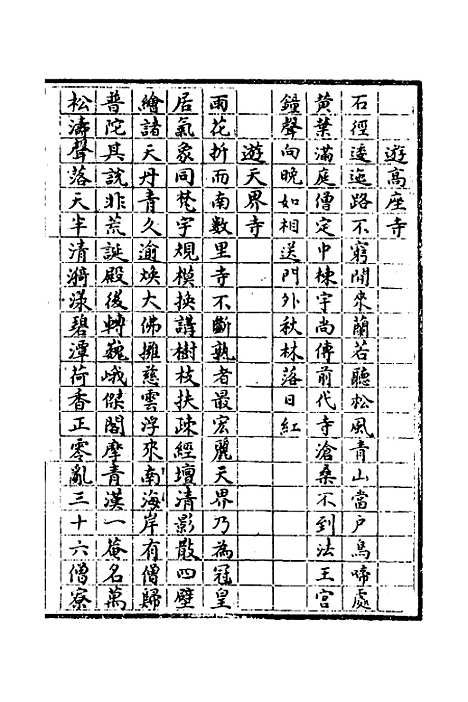 遊高座寺
石徑逶迤路不窮閒來蘭若聽松風青山當戶鳥啼處
黃葉滿庭僧定中棟宇尚傳前代寺滄桑不到法王宮
鐘聲向晚如相送門外秋林落日紅
遊天界寺
雨花折而南數里寺不斷孰者最宏麗天界乃為冠皇
居氣象同梵宇規模換講樹枝扶疎經壇清影散四壁
繪諸天丹青久逾煥大佛擁慈雲浮來南海岸有僧歸
普陀其說非荒誕殿後轉巍峨傑閣摩青漢一菴名萬
松濤聲落天半清漪漾碧潭荷香正零亂三十六僧寮